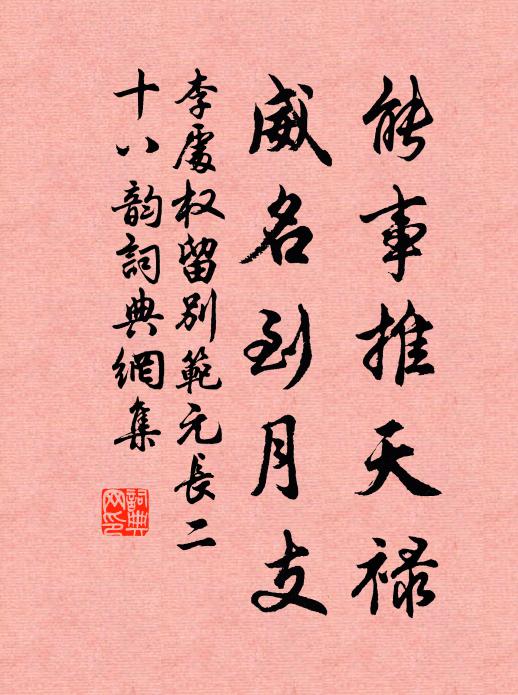 能事推天禄
威名到月支
李處权留別範元長二
十八韵詞典網集
詞典
网印